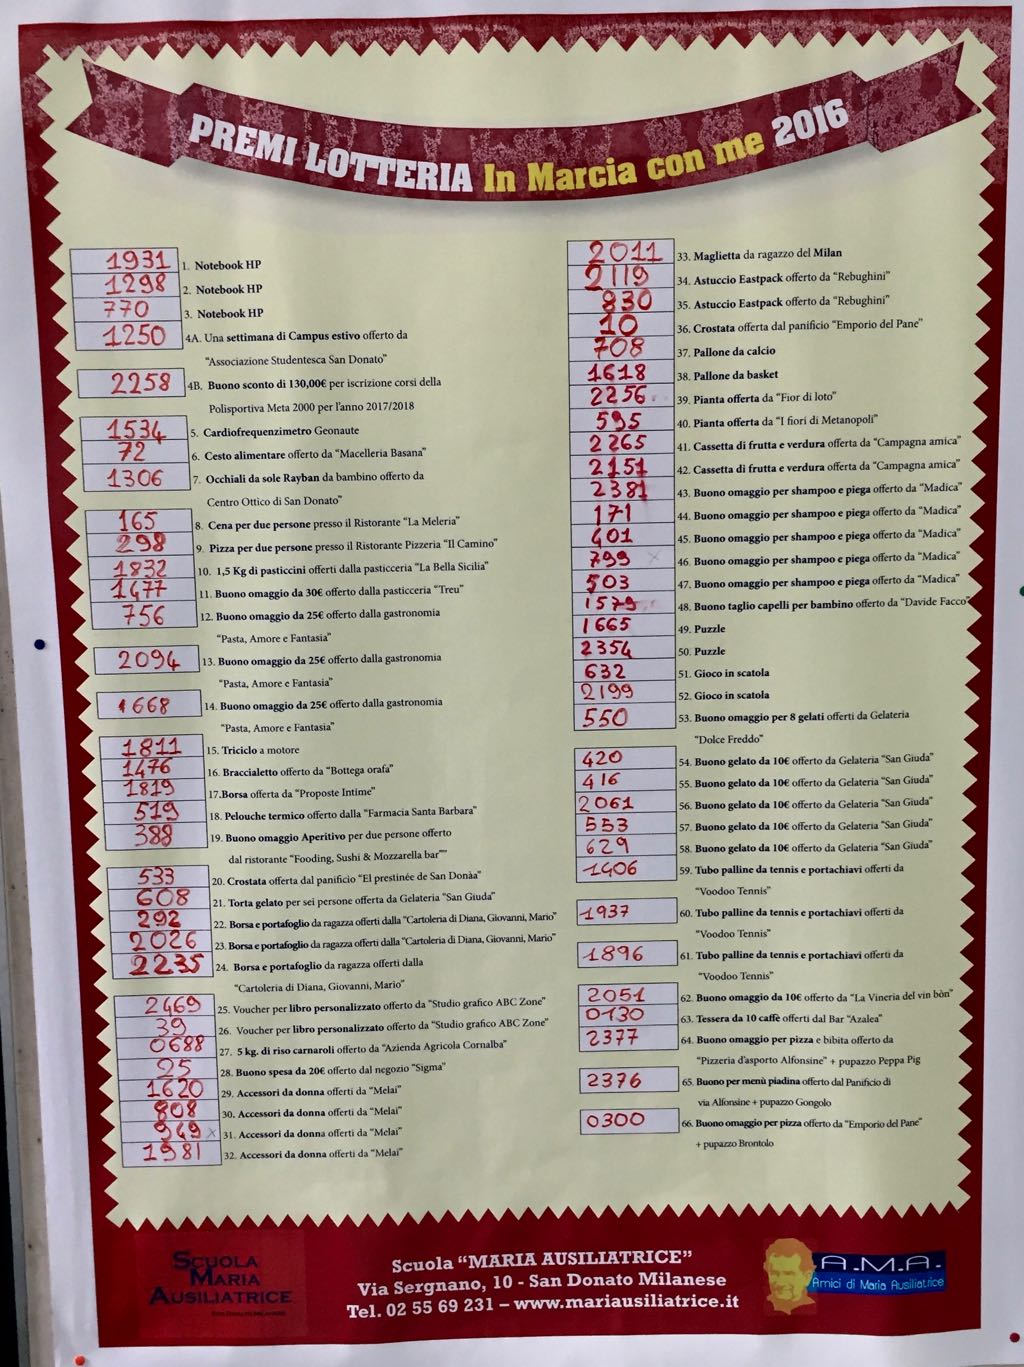 PREMI LOTTERIA In Marcia con me 2016
1931 1. Notebook HP
1298 2. Notebook HP
770 3. Notebook HP
1250 4A. Una settimana di Campus estivo offerto da
"Associazione Studentesca San Donato"
2258 4B. Buono sconto di 130,00€ per iscrizione corsi della
Polisportiva Meta 2000 per l'anno 2017/2018
1534 5. Cardiofrequenzimetro Geonaute
72 6. Cesto alimentare offerto da "Macelleria Basana"
1306 7. Occhiali da sole Rayban da bambino offerto da
Centro Ottico di San Donato"
165 8. Cena per due persone presso il Ristorante "La Meleria"
298 9. Pizza per due persone presso il Ristorante Pizzeria "Il Camino"
1832 10. 1,5 Kg di pasticcini offerti dalla pasticceria "La Bella Sicilia"
1477 11. Buono omaggio da 30€ offerto dalla pasticceria "Treu"
756 12. Buono omaggio da 25€ offerto dalla gastronomia
"Pasta, Amore e Fantasia"
2094 13. Buono omaggio da 25€ offerto dalla gastronomia
"Pasta, Amore e Fantasia"
1668 14. Buono omaggio da 25€ offerto dalla gastronomia
"Pasta, Amore e Fantasia"
1811 15. Triciclo a motore
1476 16. Braccialetto offerto da "Bottega orafa"
1819 17.Borsa offerta da "Proposte Intime"
519 18. Pelouche termico offerto dalla "Farmacia Santa Barbara"
388 19. Buono omaggio Aperitivo per due persone offerto
dal ristorante "Fooding, Sushi & Mozzarella bar""
533 20. Crostata offerta dal panificio "El prestinée de San Donàa"
608 21. Torta gelato per sei persone offerta da Gelateria "San Giuda"
292 22. Borsa e portafoglio da ragazza offerti dalla "Cartoleria di Diana, Giovanni, Mario"
2026 23. Borsa e portafoglio da ragazza offerti dalla "Cartoleria di Diana, Giovanni, Mario"
2235 24. Borsa e portafoglio da ragazza offerti dalla
"Cartoleria di Diana, Giovanni, Mario"
2469 25. Voucher per libro personalizzato offerto da "Studio grafico ABC Zone"
39 26. Voucher per libro personalizzato offerto da "Studio grafico ABC Zone"
0688 27. 5 kg. di riso carnaroli offerto da "Azienda Agricola Cornalba"
25 28. Buono spesa da 20€ offerto dal negozio "Sigma"
1620 29. Accessori da donna offerti da "Melai"
808 30. Accessori da donna offerti da "Melai"
949 x 31. Accessori da donna offerti da "Melai"
1981 32. Accessori da donna offerti da "Melai"
2011 33. Maglietta da ragazzo del Milan
2119 34. Astuccio Eastpack offerto da "Rebughini"
830 35. Astuccio Eastpack offerto da "Rebughini"
10 36. Crostata offerta dal panificio "Emporio del Pane"
708 37. Pallone da calcio
1618 38. Pallone da basket
2256 39. Pianta offerta da "Fior di loto"
595 40. Pianta offerta da "I fiori di Metanopoli"
2265 41. Cassetta di frutta e verdura offerta da "Campagna amica"
2151 42. Cassetta di frutta e verdura offerta da "Campagna amica"
2381 43. Buono omaggio per shampoo e piega offerto da "Madica"
171 44. Buono omaggio per shampoo e piega offerto da "Madica"
401 45. Buono omaggio per shampoo e piega offerto da "Madica"
799 x 46. Buono omaggio per shampoo e piega offerto da "Madica"
503 47. Buono omaggio per shampoo e piega offerto da "Madica"
1579 48. Buono taglio capelli per bambino offerto da "Davide Facco"
1665 49. Puzzle
2354 50. Puzzle
632 51. Gioco in scatola
2199 52. Gioco in scatola
550 53. Buono omaggio per 8 gelati offerti da Gelateria
"Dolce Freddo"
420 54. Buono gelato da 10€ offerto da Gelateria "San Giuda"
416 55. Buono gelato da 10€ offerto da Gelateria "San Giuda"
2061 56. Buono gelato da 10€ offerto da Gelateria "San Giuda"
553 57. Buono gelato da 10€ offerto da Gelateria "San Giuda"
629 58. Buono gelato da 10€ offerto da Gelateria "San Giuda"
1406 59. Tubo palline da tennis e portachiavi offerti da
"Voodoo Tennis"
1937 60. Tubo palline da tennis e portachiavi offerti da
"Voodoo Tennis"
1896 61. Tubo palline da tennis e portachiavi offerti da
"Voodoo Tennis"
2051 62. Buono omaggio da 10€ offerto da "La Vineria del vin bòn"
0130 63. Tessera da 10 caffè offerti dal Bar "Azalea"
2377 64. Buono omaggio per pizza e bibita offerto da
"Pizzeria d'asporto Alfonsine" + pupazzo Peppa Pig
2376 65. Buono per menù piadina offerto dal Panificio di
via Alfonsine + pupazzo Gongolo
0300 66. Buono omaggio per pizza offerto da "Emporio del Pane"
+ pupazzo Brontolo
SCUOLA
MARIA
AUSILIATRICE
Scuola "MARIA AUSILIATRICE"
Via Sergnano, 10 - San Donato Milanese
Tel. 02 55 69 231 – www.mariausiliatrice.it
A.M.A.
Amici di Maria Ausiliatrice